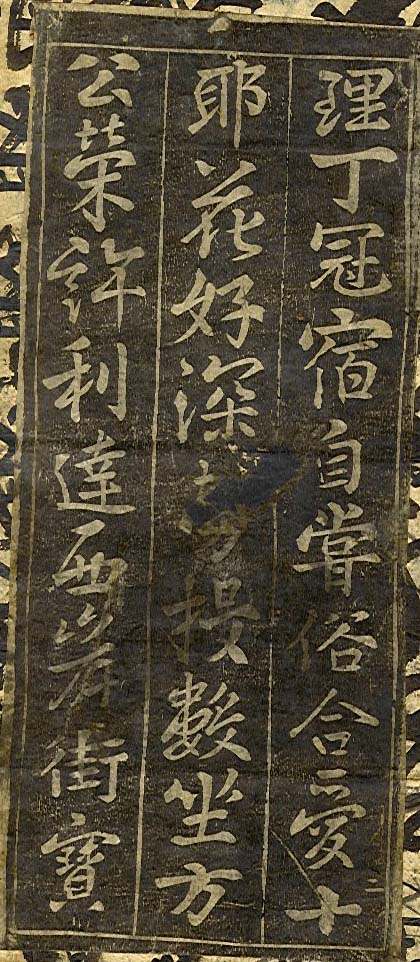 理丁冠宿自俗合愛十
耶花好深數坐方
公榮許利達西岸街寶